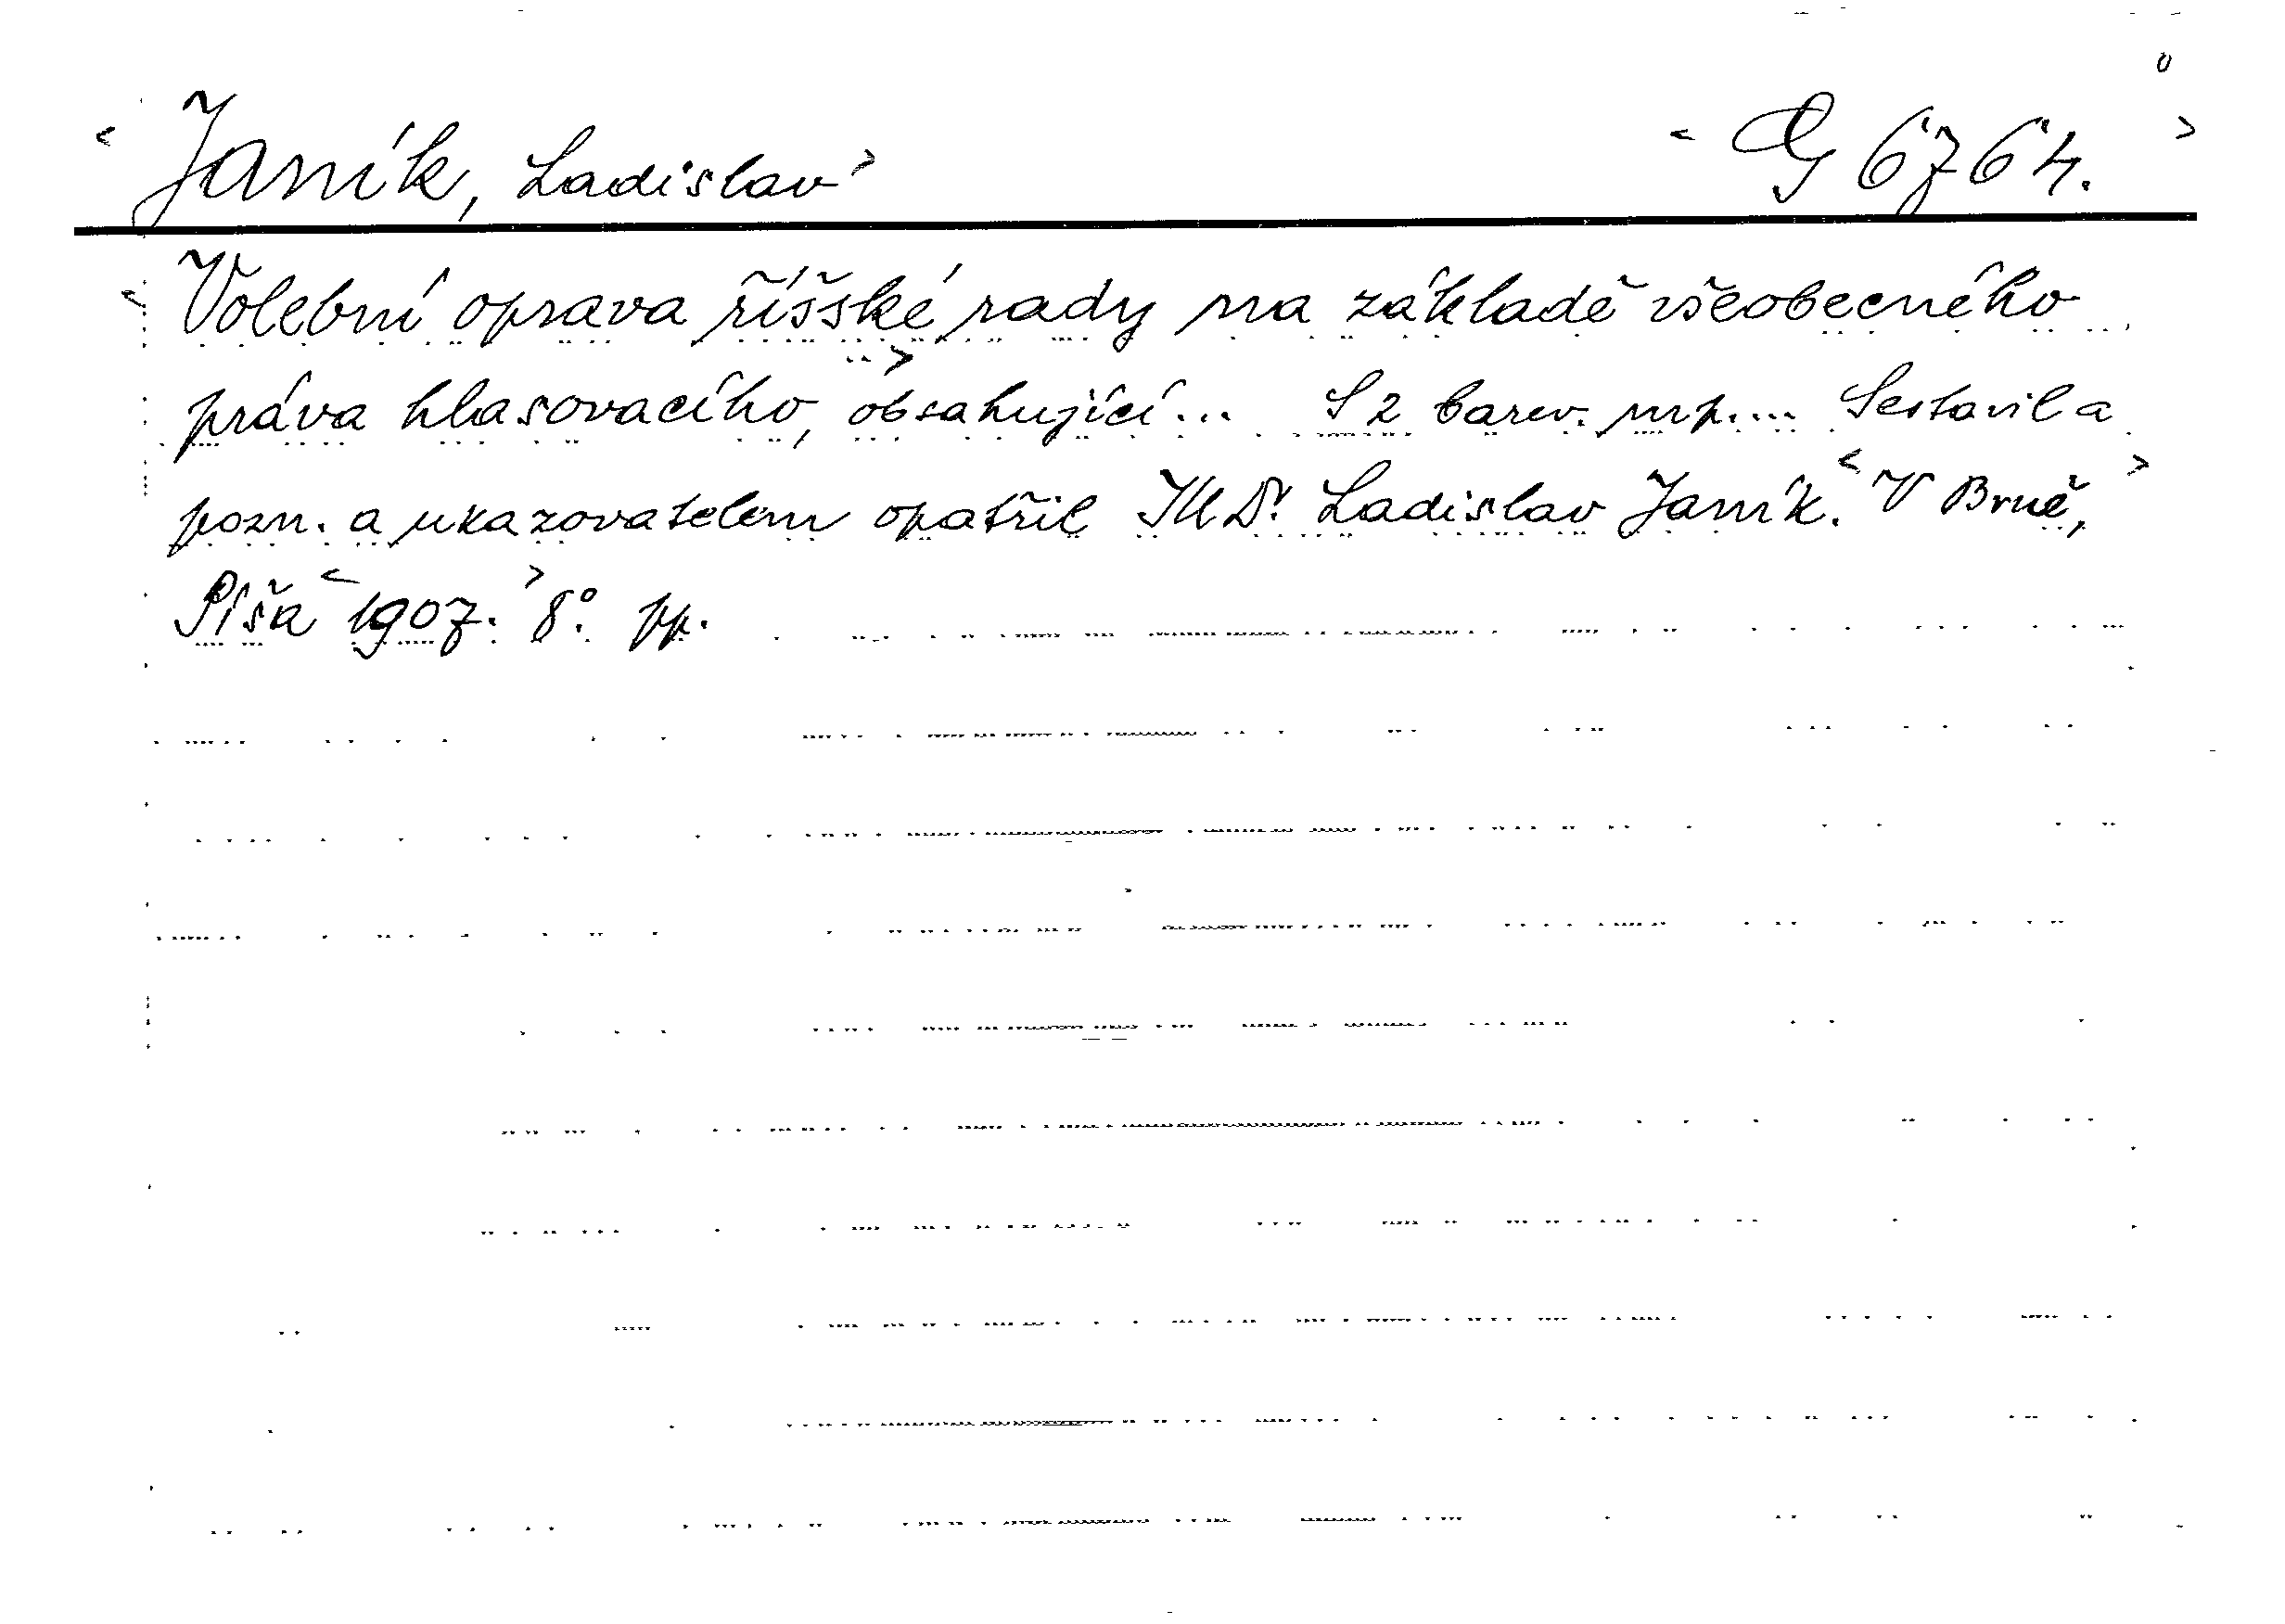 < Janík, Ladislav > < G 6764. >
< Volební oprava říšské rady na základě všeobecného
práva hlasovacího, > obsahující... S 2 barev. mp.... Sestavil a
pozn. a ukazovatelem opatřil JUDr. Ladislav Janík. < V Brně, >
Píša < 1907. > 8° pp.